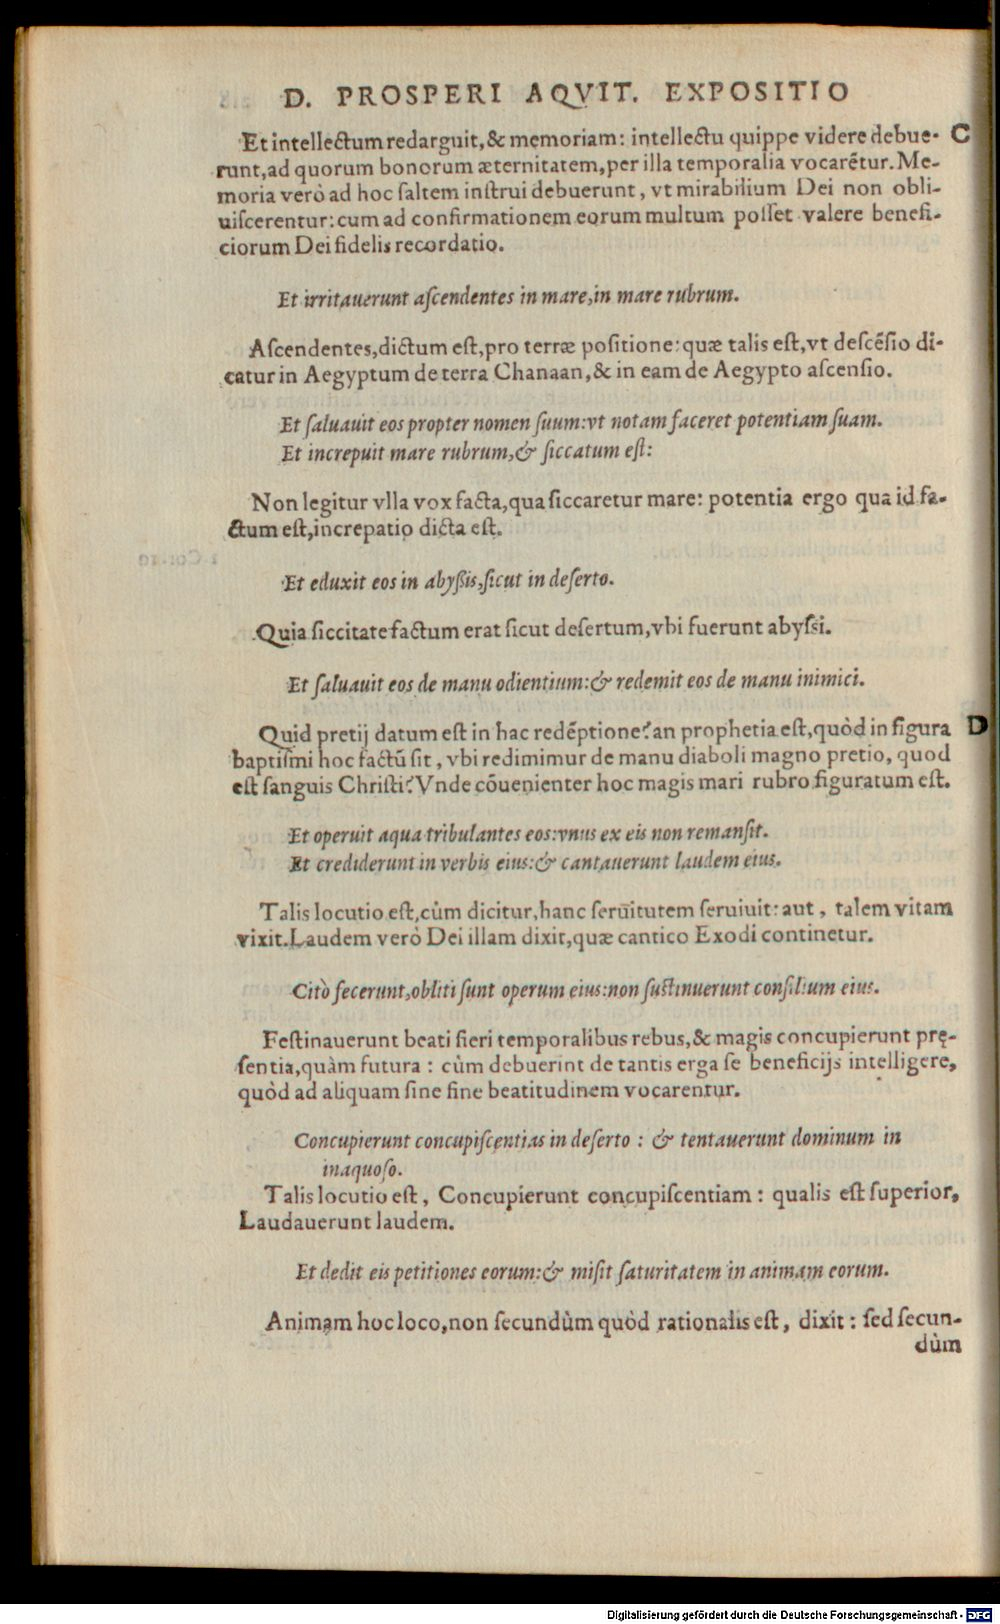 D. PROSPERI AQVIT. EXPOSITIO
Et intellectum redarguit, & memoriam: intellectu quippe videre debue- C
runt, ad quorum bonorum æternitatem, per illa temporalia vocarẽtur. Me-
moria verò ad hoc ſaltem inſtrui debuerunt, vt mirabilium Dei non obli-
uiſcerentur: cum ad confirmationem eorum multum poſſet valere benefi-
ciorum Dei fidelis recordatio.
Et irritauerunt aſcendentes in mare, in mare rubrum.
Aſcendentes, dictum eſt, pro terræ poſitione: quæ talis eſt, vt deſcẽſio di-
catur in Aegyptum de terra Chanaan, & in eam de Aegypto aſcenſio.
Et ſaluauit eos propter nomen ſuum: vt notam faceret potentiam ſuam.
Et increpuit mare rubrum, & ſiccatum eſt:
Non legitur vlla vox facta, qua ſiccaretur mare: potentia ergo qua id fa-
ctum eſt, increpatio dicta eſt.
Et eduxit eos in abyßis, ſicut in deſerto.
Quia ſiccitate factum erat ſicut deſertum, vbi fuerunt abyſſi.
Et ſaluauit eos de manu odientium: & redemit eos de manu inimici.
Quid pretij datum eſt in hac redẽptione? an prophetia eſt, quòd in figura D
baptiſmi hoc factũ ſit, vbi redimimur de manu diaboli magno pretio, quod
eſt ſanguis Chriſti? Vnde cõuenienter hoc magis mari rubro figuratum eſt.
Et operuit aqua tribulantes eos: vnus ex eis non remanſit.
Et crediderunt in verbis eius: & cantauerunt laudem eius.
Talis locutio eſt, cùm dicitur, hanc ſeruitutem ſeruiuit: aut, talem vitam
vixit. Laudem verò Dei illam dixit, quæ cantico Exodi continetur.
Citò fecerunt, obliti ſunt operum eius: non ſuſtinuerunt conſilium eius.
Feſtinauerunt beati fieri temporalibus rebus, & magis concupierunt prę-
ſentia, quàm futura: cùm debuerint de tantis erga ſe beneficijs intelligere,
quòd ad aliquam ſine fine beatitudinem vocarentur.
Concupierunt concupiſcentias in deſerto: & tentauerunt dominum in
inaquoſo.
Talis locutio eſt, Concupierunt concupiſcentiam: qualis eſt ſuperior,
Laudauerunt laudem.
Et dedit eis petitiones eorum: & miſit ſaturitatem in animam eorum.
Animam hoc loco, non ſecundùm quòd rationalis eſt, dixit: ſed ſecun-
dùm
Digitalisierung gefördert durch die Deutsche Forschungsgemeinschaft - DFG